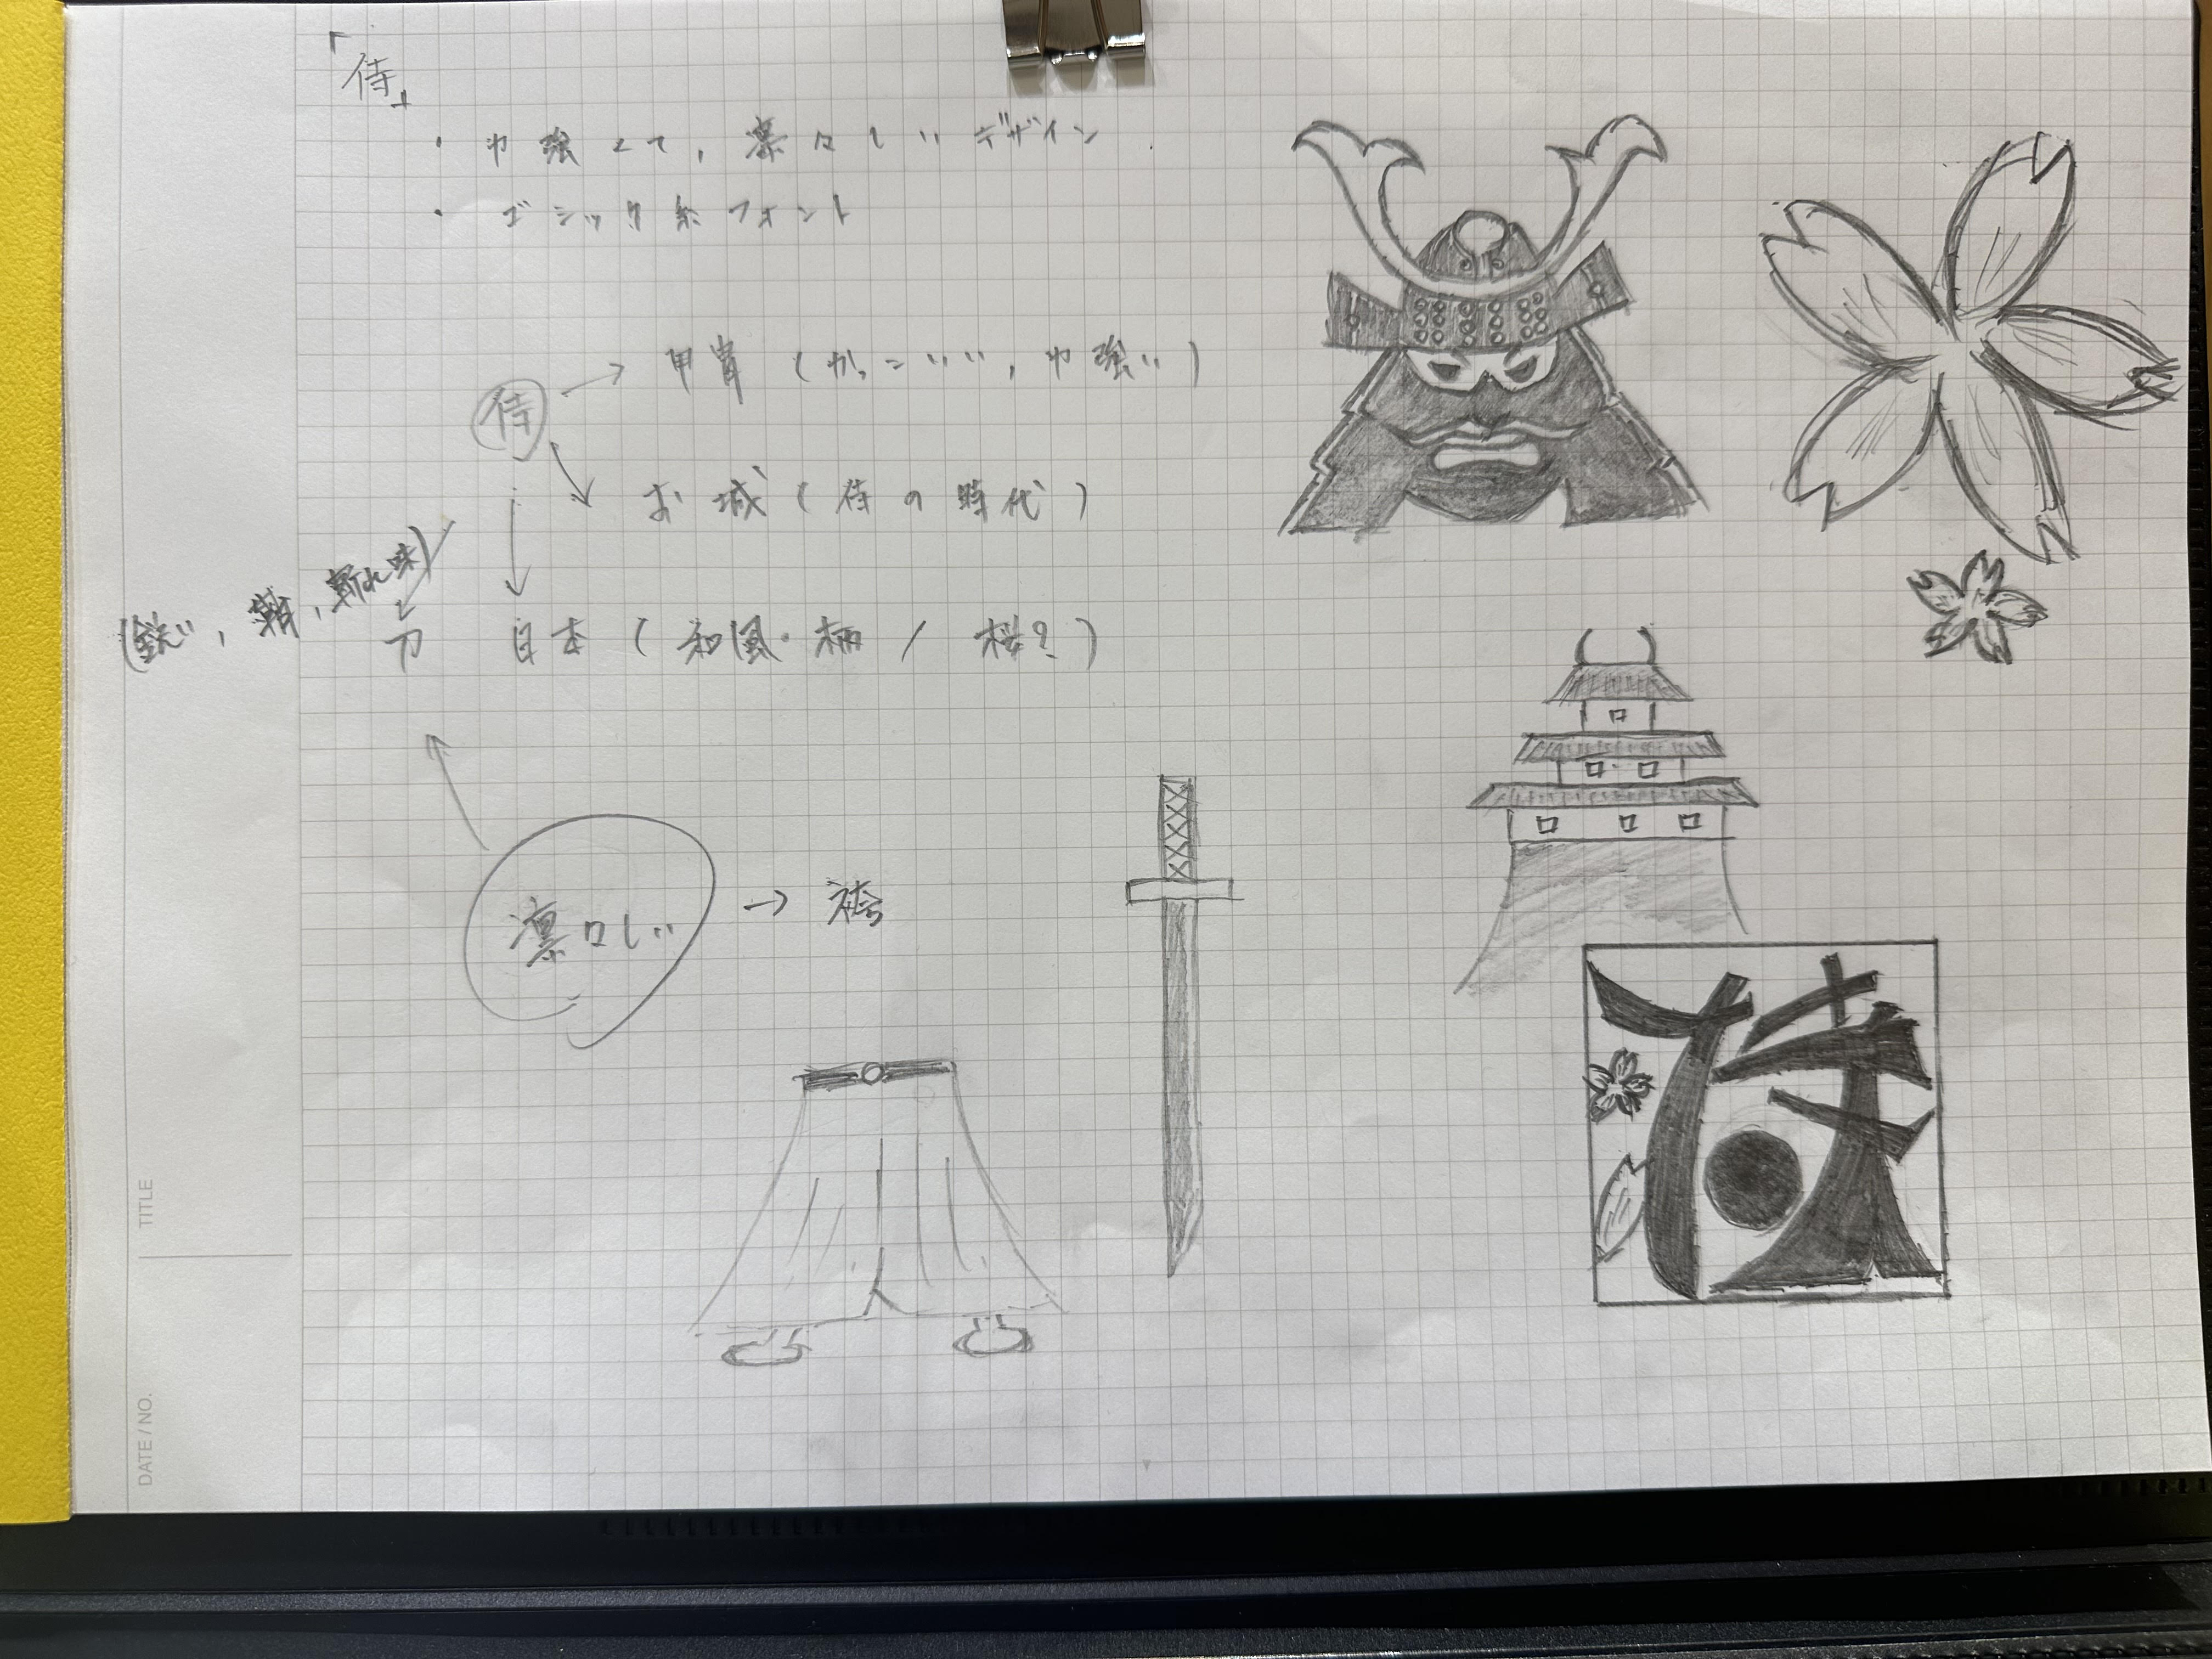 「侍」
・力強くて,凛々しいデザイン.
・ゴシック系フォント
侍 → 甲冑(かっこいい,力強い)
お城(侍の時代)
(鋭い,鞘,斬れ味)
刀 日本(和風・柄/桜?)
凛々しい → 袴
侍
TITLE
DATE / NO.